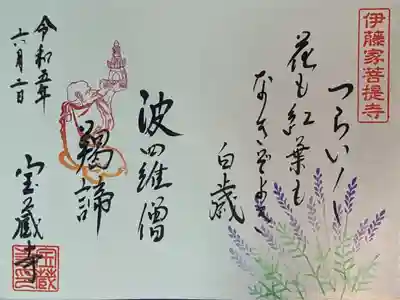 伊藤家菩提寺
つらい〳〵
花も紅葉も
なきぞよき
白歳
波羅僧
羯諦
宝蔵寺
令和五年
六月二日